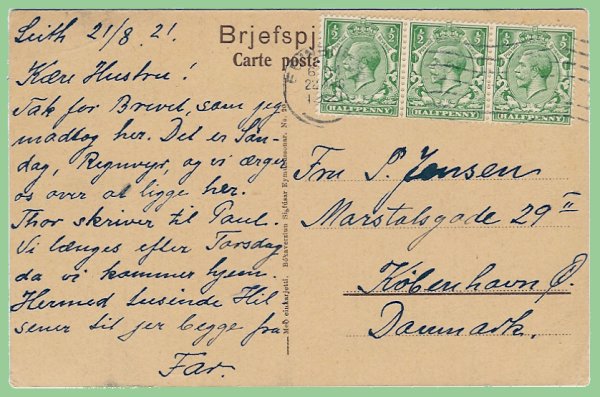 Leith 21/8. 21.
Kære Hustru!
Tak for Brevet, som jeg
modtog her. Det er Søn-
dag, Regnvejr, og vi ærger
os over at ligge her.
Thor skriver til Paul.
Vi længes efter Torsdag
da vi kommer hjem.
Hermed tusinde Hil
sener til jer begge fra
Far.
Brjefspj
Carte posta
HALFPENNY
HALFPENNY
HALFPENNY
Fru P. Jensen
Marstalsgade 29 II
København Ø.
Danmark.
Með einkarjetti. Bókaverslun Sigfúsar Eymundssonar. No.